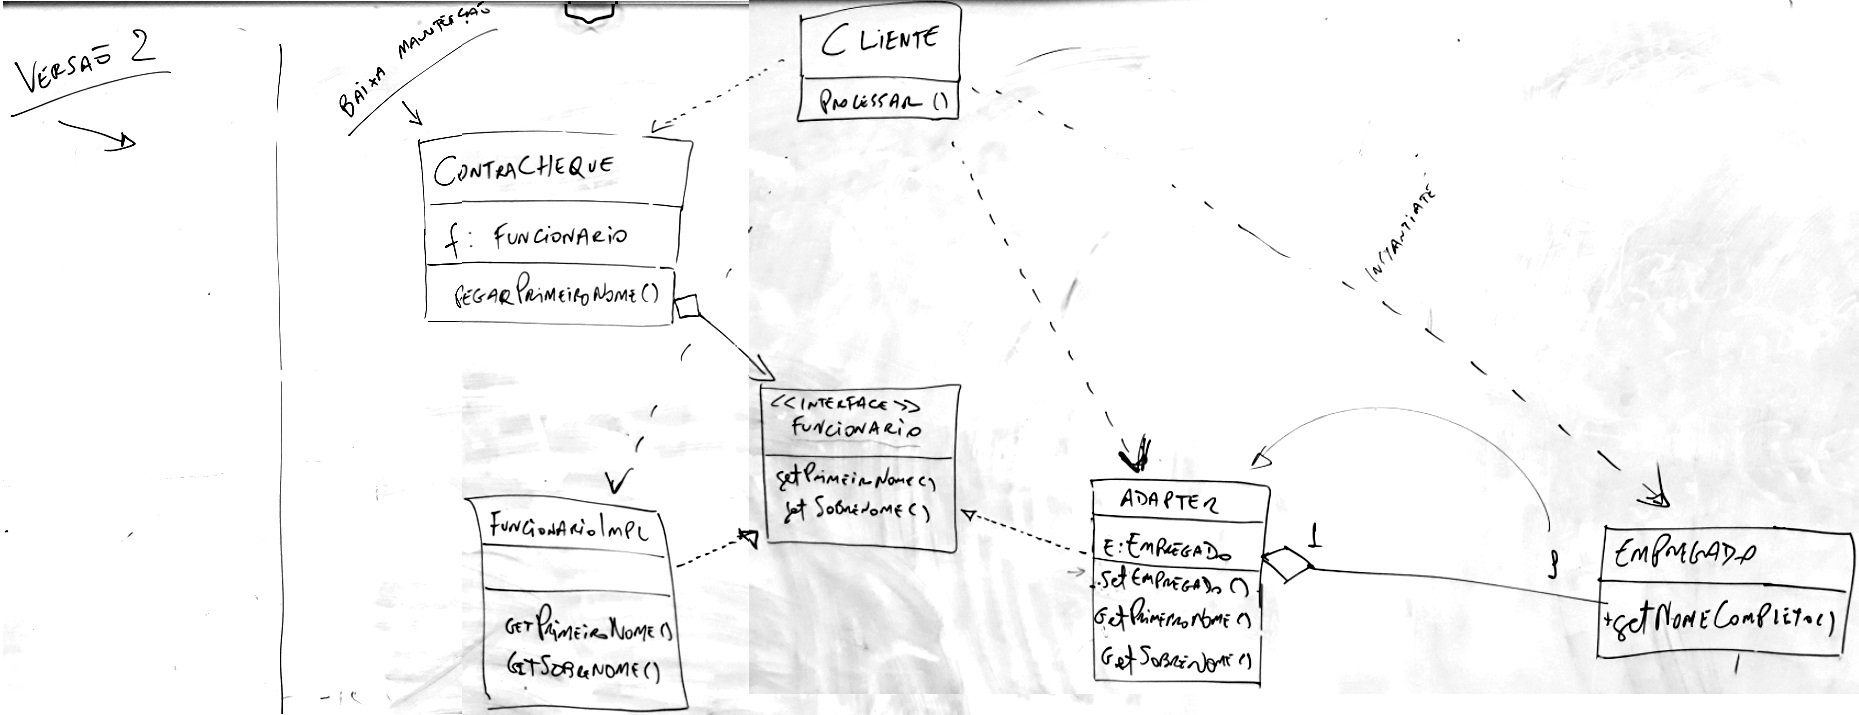 VERSÃO 2
BAIXA MANUTENÇÃO
CLIENTE
PROCESSAR ()
CONTRACHEQUE
f: FUNCIONARIO
PEGARPRIMEIRONOME()
INSTANTIATE
<<INTERFACE>>
FUNCIONARIO
getPRIMEIRONOME()
get SOBRENOME()
FUNCIONARIOIMPL
GETPRIMEIRONOME()
GETSOBRENOME()
ADAPTER
E:EMPREGADO
SetEMPREGADO()
GetPRIMEIRONOME()
GetSOBRENOME()
1
EMPREGADO
+getNOMECOMPLETO()